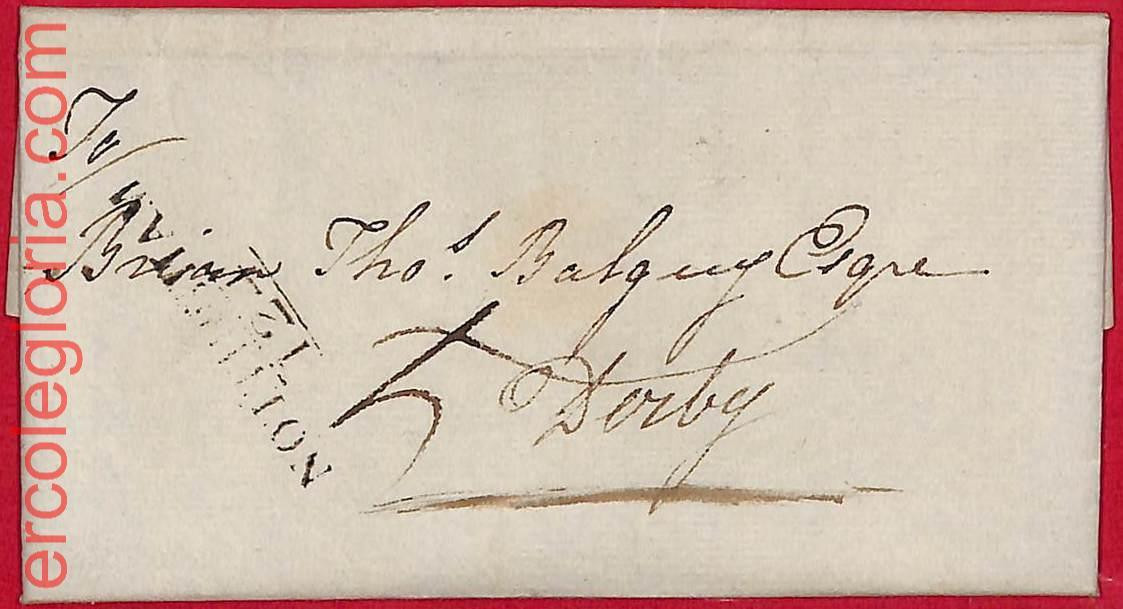 To
Brian Thos. Balguy Esqre
5
Derby
121
ercolegloria.com